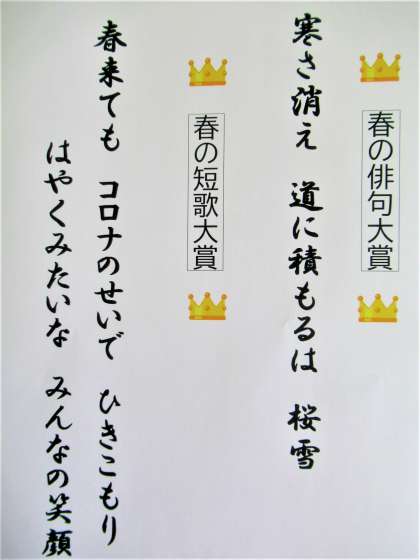 春の俳句大賞
寒さ消え　道に積もるは　桜雪
春の短歌大賞
春来ても　コロナのせいで　ひきこもり
はやくみたいな　みんなの笑顔